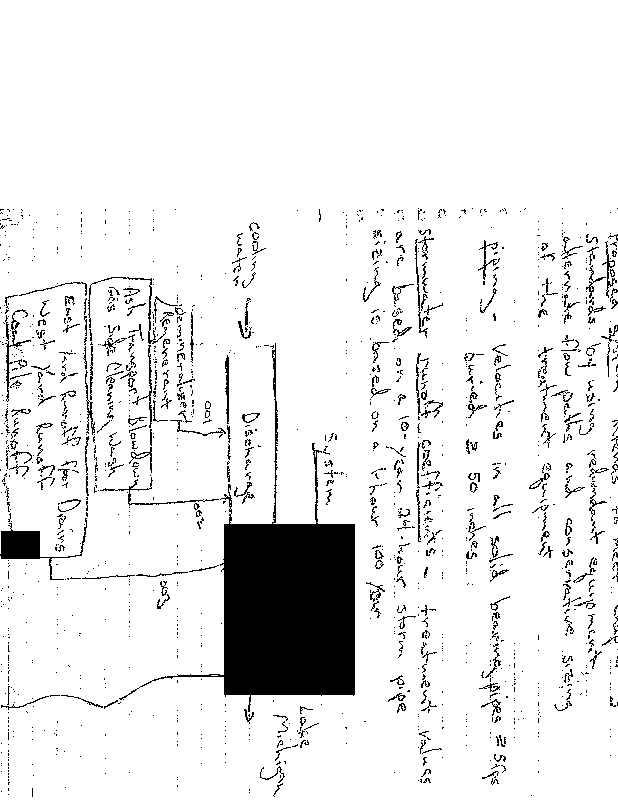 Proposed system intends to meet
standards by using redundant equipment,
alternate flow paths and conservative sizing
of the treatment equipment
piping - Velocities in all solid bearing pipes ≥ 5fps
buried ≥ 50 inches
stormwater runoff coefficients - treatment values
are based on a 10-year 24-hour storm pipe
sizing is based on a 1 hour 100 year
System
cooling
water
Discharge
Lake
Michigan
001
002
003
Demineralizer
Regenerant
Ash Transport Blowdown
Gas Side Cleaning Wash
East Yard Runoff Flor Drains
West Yard Runoff
Coal Pile Runoff